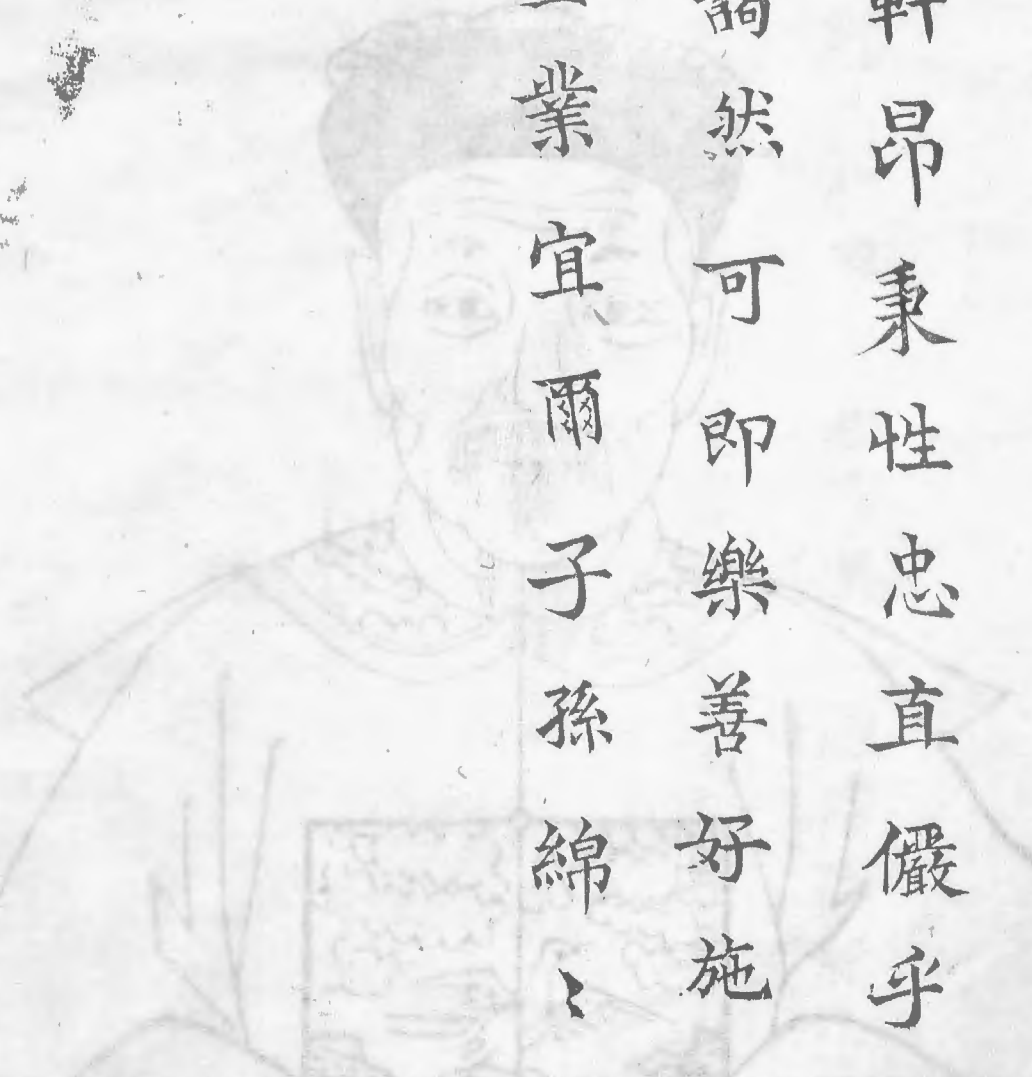 軒昂秉性忠直儼乎
然可即樂善好施
業宜爾子孫綿〻